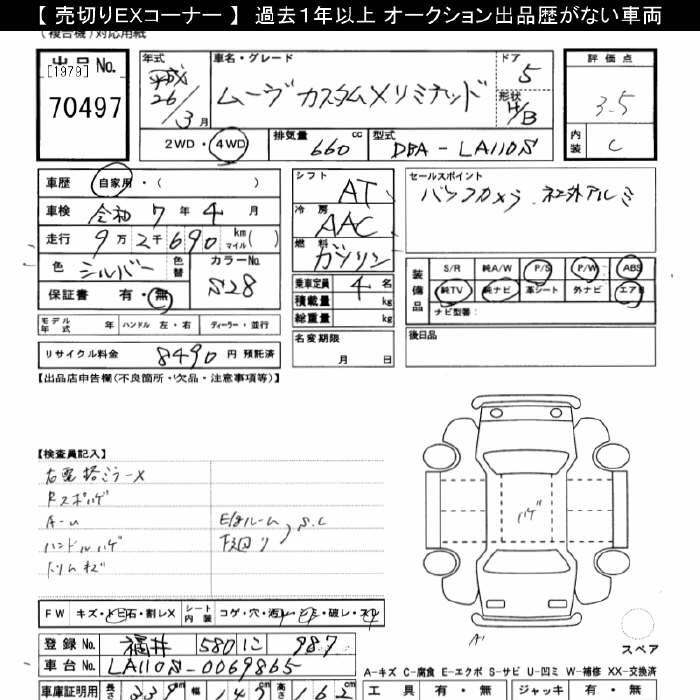 【 売切りEXコーナー 】 過去1年以上 オークション出品歴がない車両
(複合機)対応用紙
出品 No.
[1979]
70497
年式
平成
26/3月
車名・グレード
ムーヴカスタムXリミテッド
ドア
5
形状
H/B
2WD・4WD
排気量
660 cc
型式
DBA-LA110S
評価点
3.5
内装
C
車歴 自家用・( )
車検 令和 7年 4月
走行 9万 2千 690 km マイル( )
色 シルバー 色替
カラーNo. S28
保証書 有・無
モデル年式 年 ハンドル 左・右 ディーラー・並行
リサイクル料金 8490 円 預託済
シフト AT
冷房 AAC
燃料 ガソリン
乗車定員 4 名
積載量 kg
総重量 kg
名変期限
月 日
セールスポイント
バックカメラ 社外アルミ
装備品
S/R 純A/W P/S P/W ABS
純TV 純ナビ 革シート 外ナビ エアB
ナビ型番:
後日品
【出品店申告欄(不良箇所・欠品・注意事項等)】
【検査員記入】
ハンドルハゲ
ハゲ
FW キズ・トビ石・割レX
シート内装 コゲ・穴・汚レ・ 破レ・
登録 No. 福井 580 に 987
車台 No. LA110S-0069865
車庫証明用 長さ 339 cm 幅 149 cm 高さ 162 cm
A
スペア
A-キズ C-腐食 E-エクボ S-サビ U-凹ミ W-補修 XX-交換済
工具 有・無 ジャッキ 有・無